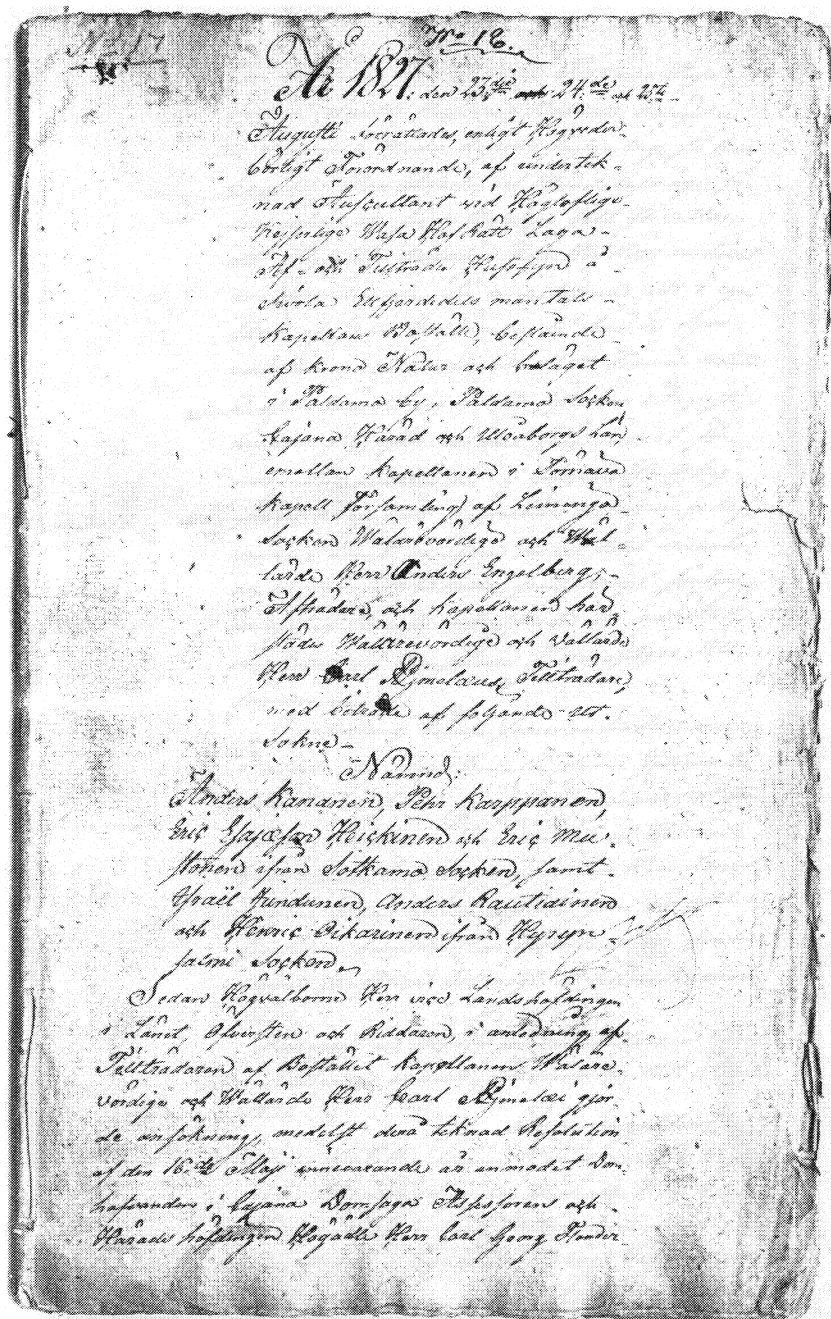 No 17
No 18.
År 1827. den 23dje och 24.de och 25te
Augusti förrättades, enligt Högveder-
börligt Förordnande, af underteck-
nad Auscultant vid Högloflige
Kejserlige Wasa HofRätt Laga
Af- och Tillträdes Husesyn å
Ettfjerdedels mantals
Kapellans Boställe, bestående
af Krono Natur och beläget
i Paldamo by, Paldamo Socken
Cajana Härad och Uleåborgs Län
emellan Kapellanen i Temmes
Kapell församling af Limingo
Socken Wälärevördige och Wäl-
lärde Herr Anders Engelberg,
Afträdare, och Kapellanen här
städes Wälärevördige och Wällärde
Herr Carl Tillträdare,
med biträde af följande
Nämnd:
Anders Kananen, Pehr Karppanen,
Eric Esajæson Heickinen och Eric Mu-
stonen ifrån Sotkamo Socken, samt
Israël Jundunen, Anders Rautiainen
och Henric Pikarinen ifrån Hyryn-
salmi Socken.
Sedan Högvälborne Herr vice Landshöfdingen
i Länet, Öfversten och Riddaren, i anledning af
Tillträdaren af Bostället Kapellanen Wäläre-
vördige och Wällärde Herr Carl gjor-
de ansökning, medelst tecknad Resolution
af den 16.de Maji innevarande år anmodat Dom-
hafvanden i Cajana Domsaga Assessoren och
Härads höfdingen Högädle Herr Carl Georg